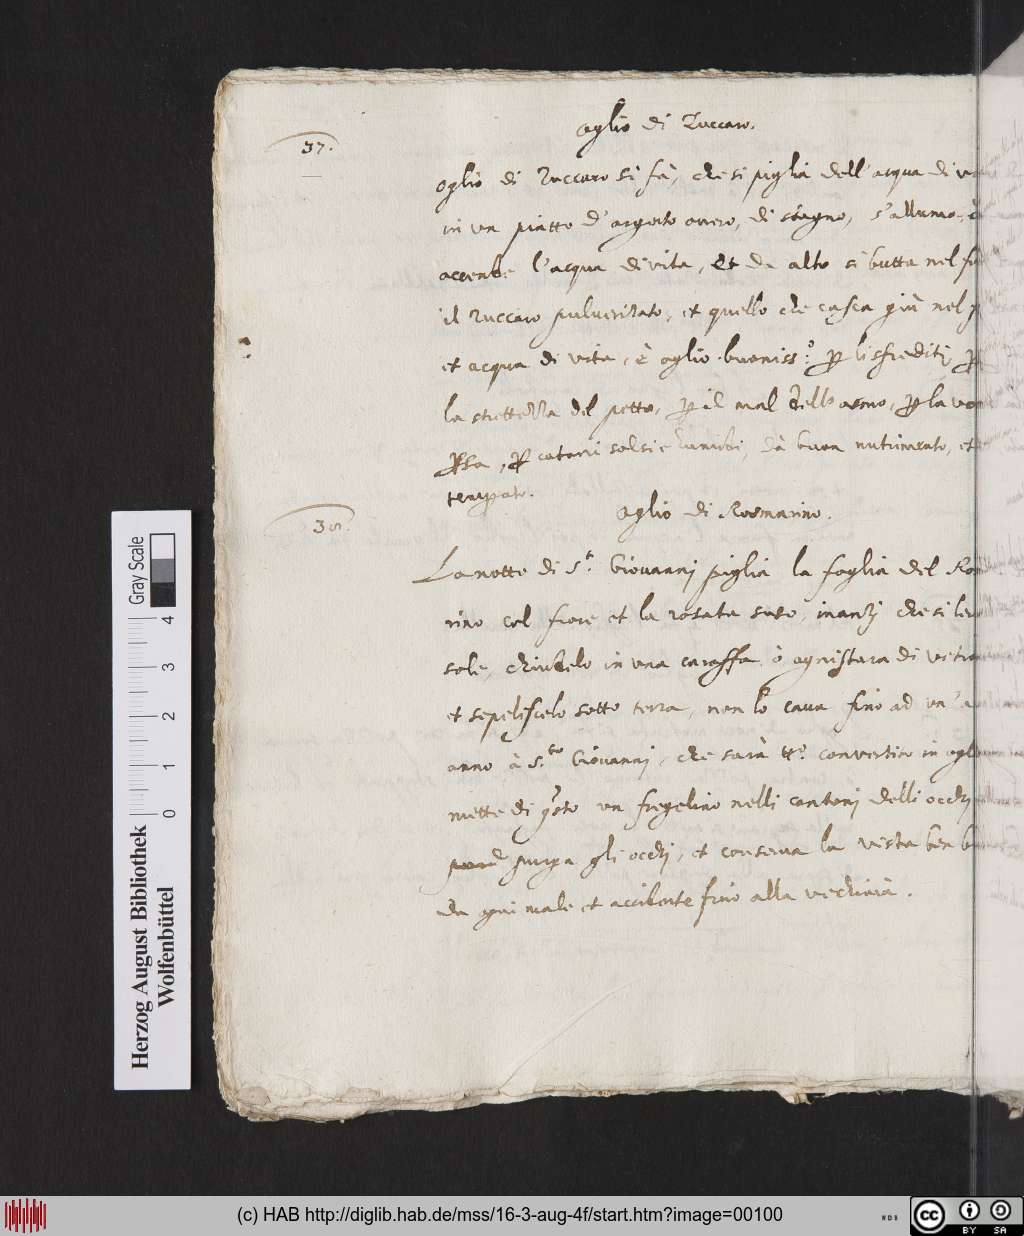 Oglio di Zuccaro.
37.
Oglio di Zuccaro si fà, che si piglia dell'acqua di
in un piatto d'argento overo, di stagno, s'alluma, è
accende l'acqua di vita, et da alto si butta nel
il Zuccaro pulverizato, et quello che casca giù nel
et acqua di vita, è oglio buoniss:o per li sfrediti,
la strettezza del petto, per il mal dello asmo, per la
persa, per catarri salsi e, dà buon nutrimento, et
temperato.
38.
Oglio di Rosmarino.
La notte di S.t Giovannj piglia la foglia del
rino col fiore et la rosata suso, inantzj che si
sole, chiudelo in una caraffa, ò agnistara di
et sepeliscelo sotto terra, non lo cava fino ad un
anno à S.to Giovannj, che sarà tt.o convertito in
mette di questo un fregelino nelli cantonj delli occhj
purga gli occhj, et conserva la vista ben
da ogni male et accidente fino alla vechiaia.
Herzog August Bibliothek
Wolfenbüttel
Gray Scale
0 1 2 3 4
(c) HAB http://diglib.hab.de/mss/16-3-aug-4f/start.htm?image=00100
cc BY SA